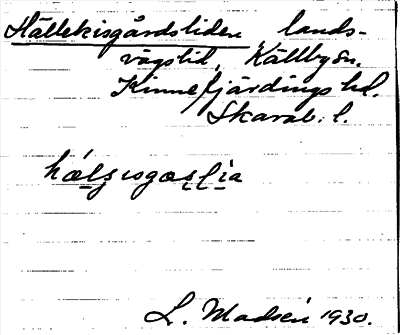 Hällekisgårdsliden, lands-
vägslid, Källby sn.
Kinnefjärdings hd.
Skarab. l.
L. Madsén 1930.